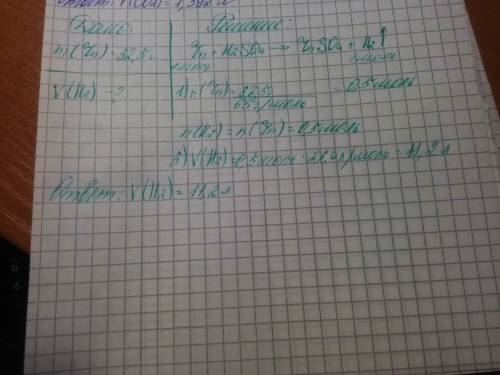 Ответ: V(CO2) = 1,392 л
Дано:
m(Zn) = 32,5г
V(H2) - ?
Решение:
Zn + H2SO4 → ZnSO4 + H2↑
1) n(Zn) = 32,5г / 65г/моль = 0,5 моль
n(H2) = n(Zn) = 0,5 моль
2) V(H2) = 0,5 моль · 22,4 л/моль = 11,2 л
Ответ: V(H2) = 11,2 л